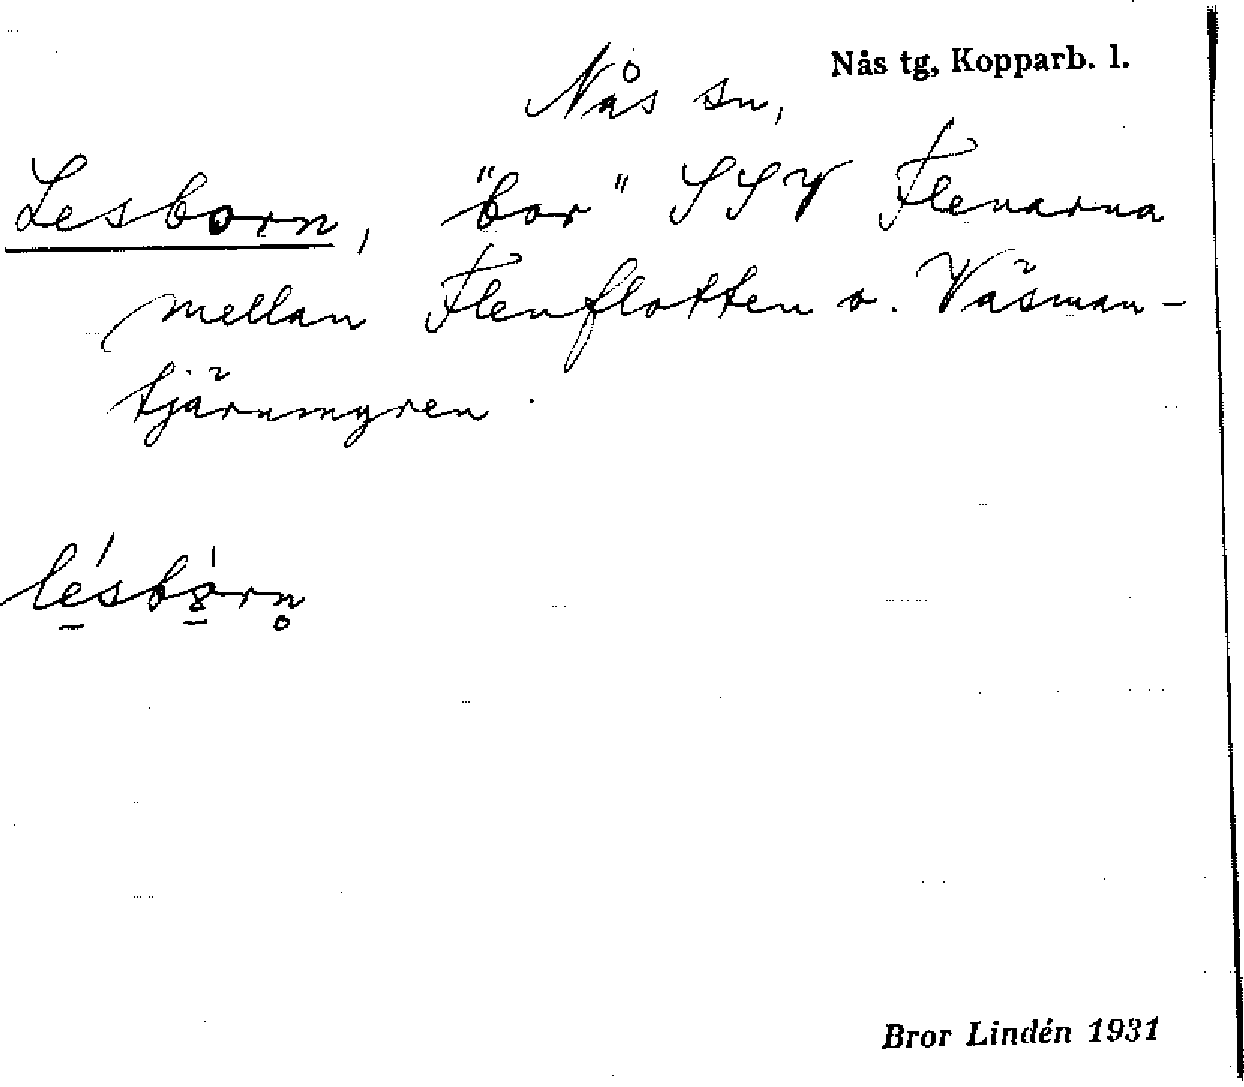 Nås tg, Kopparb. l.
Nås sn,
Lesborn, "bor" SSV Flenarna
mellan Flenflotten o. Väsman-
tjärnmyren.
Bror Lindén 1931